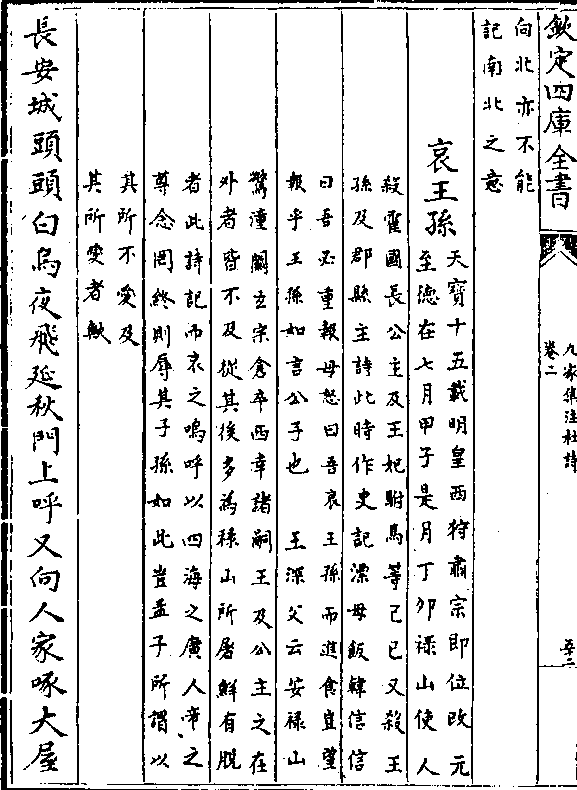 欽定四庫全書
九家集注杜詩
卷二
向北亦不能
記南北之意
哀王孫
天寶十五載明皇西狩肅宗即位改元
至德在七月甲子是月丁卯祿山使人
殺霍國長公主及王妃駙馬等己巳又殺王
孫及郡縣主詩此時作史記漂母飯韓信信
曰吾必重報母怒曰吾哀王孫而進食豈望
報乎王孫如言公子也 王深父云安祿山
驚潼關玄宗倉卒西幸諸嗣王及公主之在
外者皆不及從其後多為祿山所屠鮮有脫
者此詩記而哀之嗚呼以四海之廣人帝之
尊念罔終則辱其子孫如此豈孟子所謂以
其所不愛及
其所愛者歟
長安城頭頭白烏夜飛延秋門上呼又向人家啄大屋